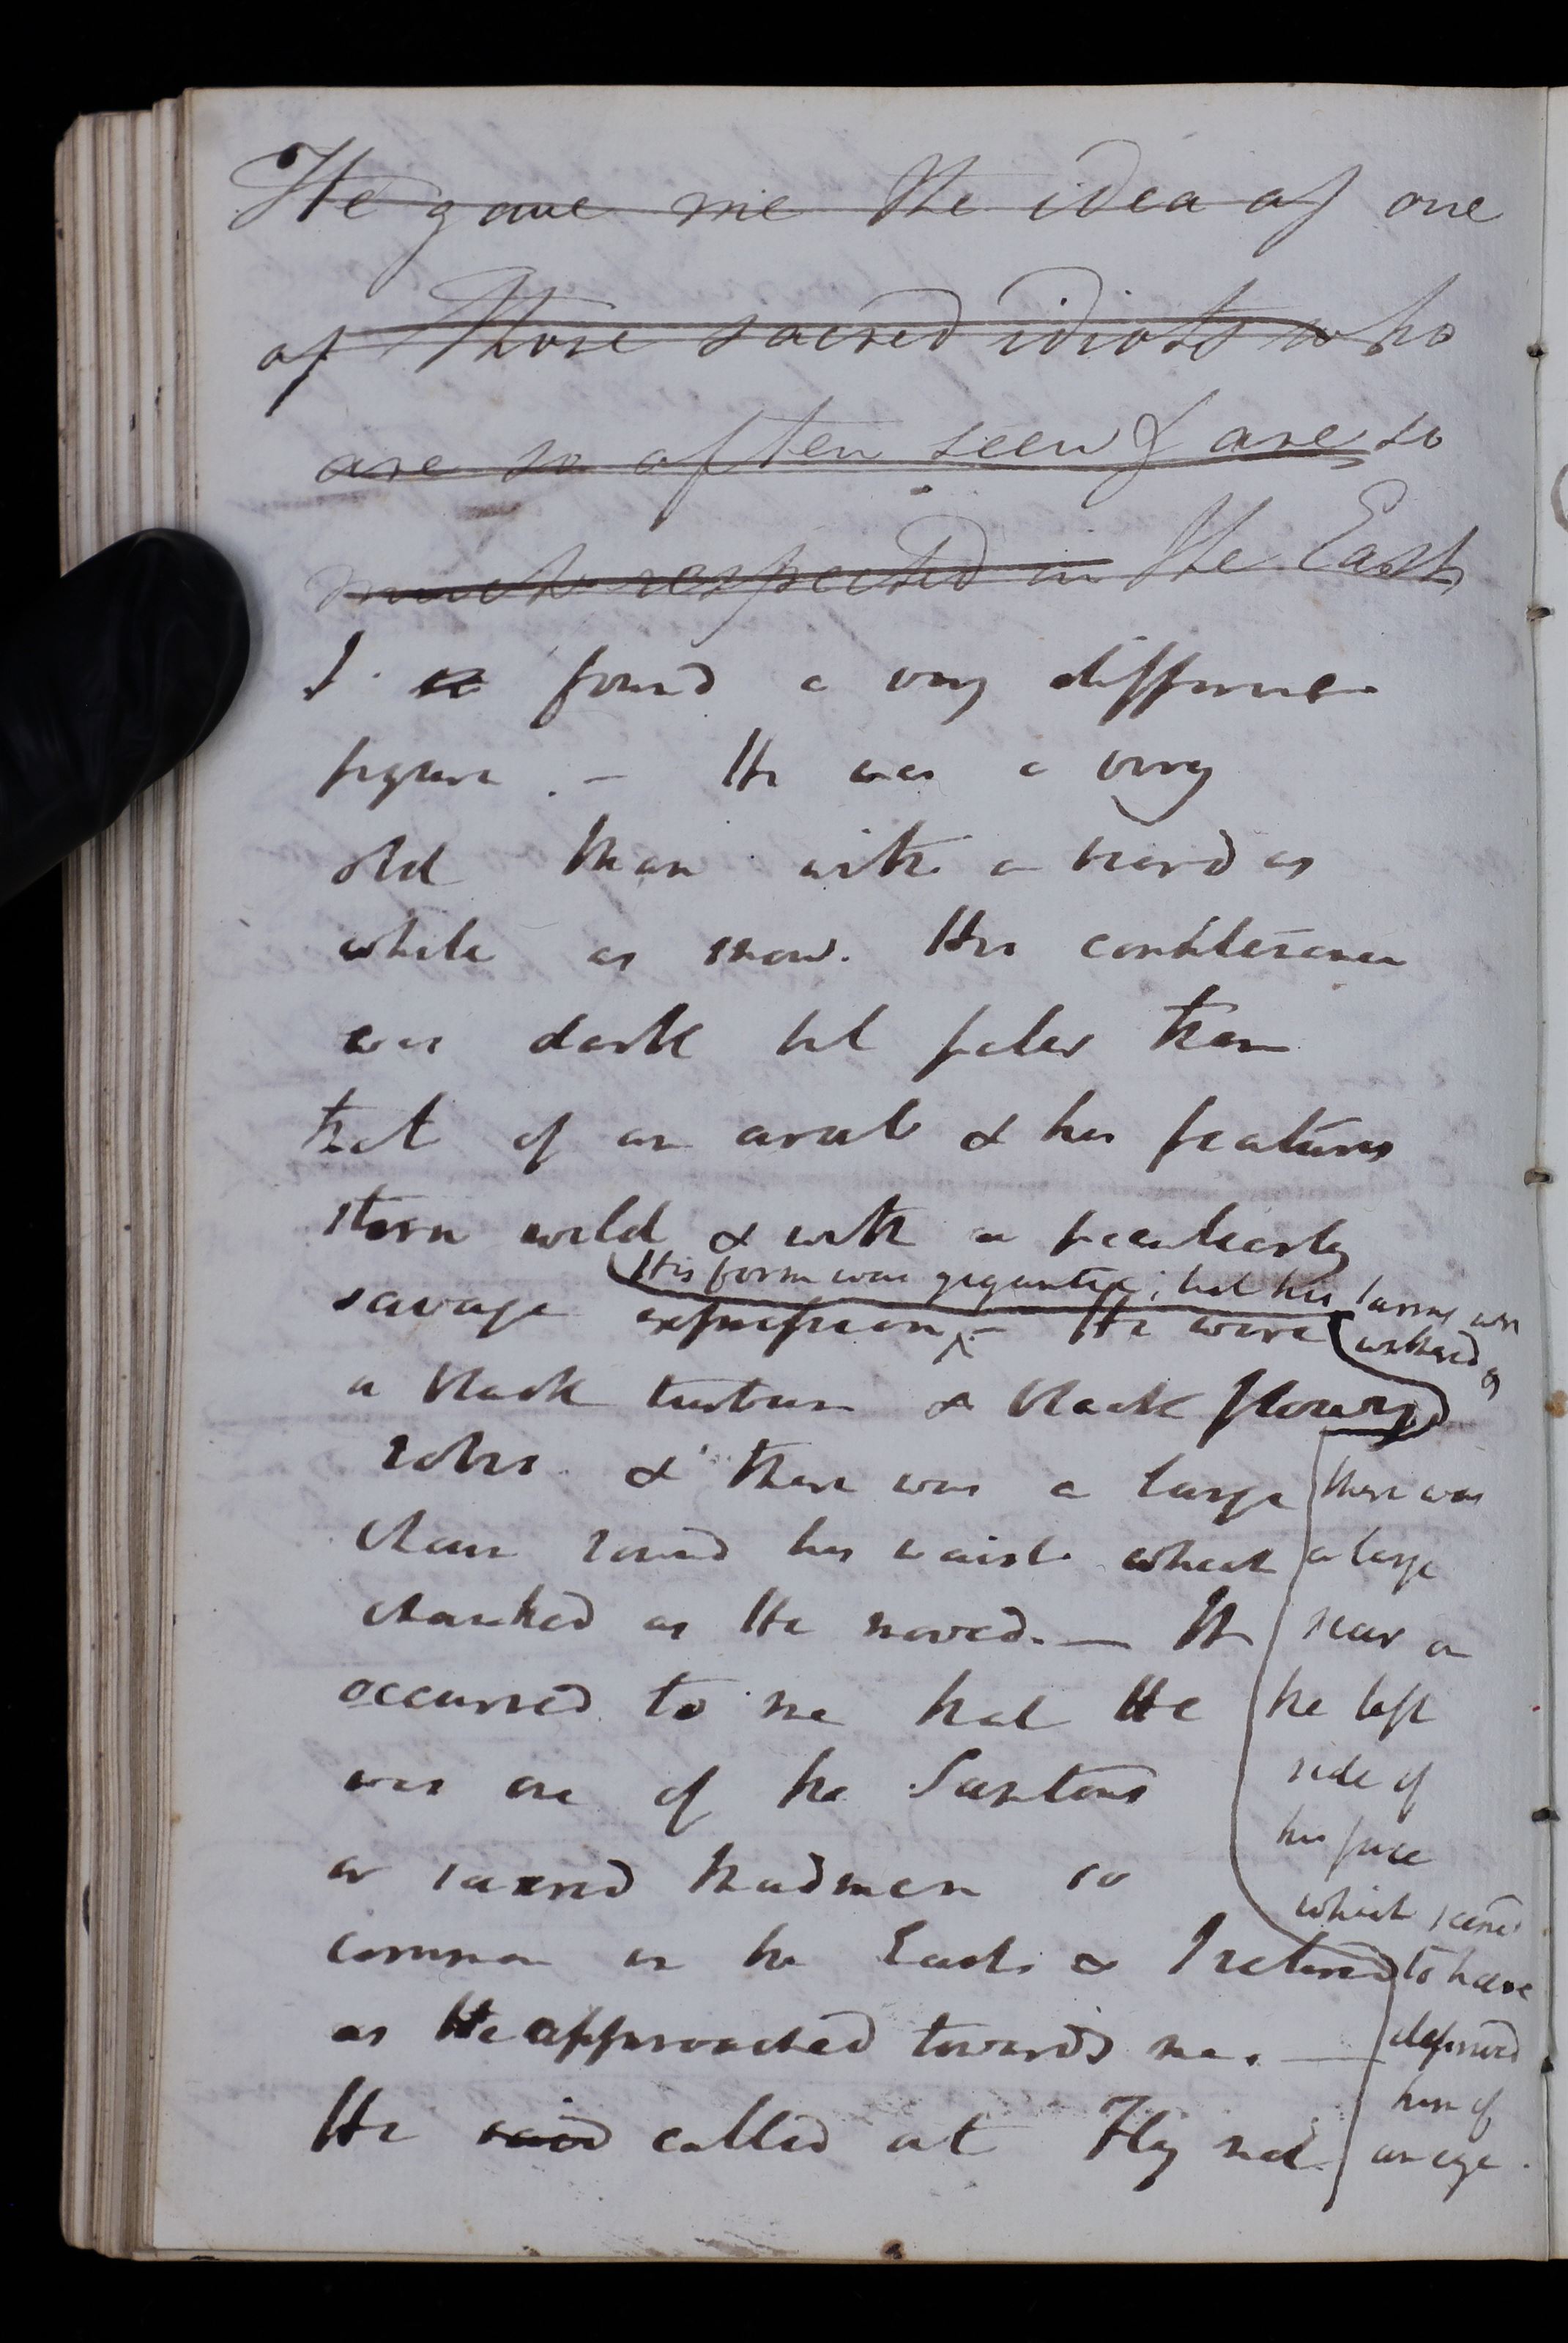 He gave me the idea of one
of those sacred idiots who
are so often seen & are so
much respected in the East
I found a very different
figure. – He was a very
old man with a beard as
white as snow. His countenance
was dark but paler than
that of an arab & his features
stern wild & with a peculiarly
His form was gigantic; but his
savage expression – He wore
a black turban & black flowing
robes & there was a large
chain round his waist which
clanked as He moved. — It
occurred to me that He
was one of the Santons
or sacred madmen so
common in the East & I retired
as He approached towards me. —
He said called at Fly not
arms were
withered &
there was
a large
scar on
the left
side of
his face
which seemed
to have
deprived
him of
an eye.